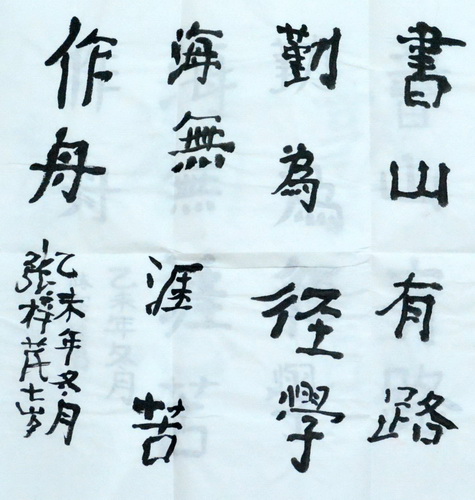 書山有路
勤為径學
海無涯苦
作舟
乙未年冬月
張梓芃七岁